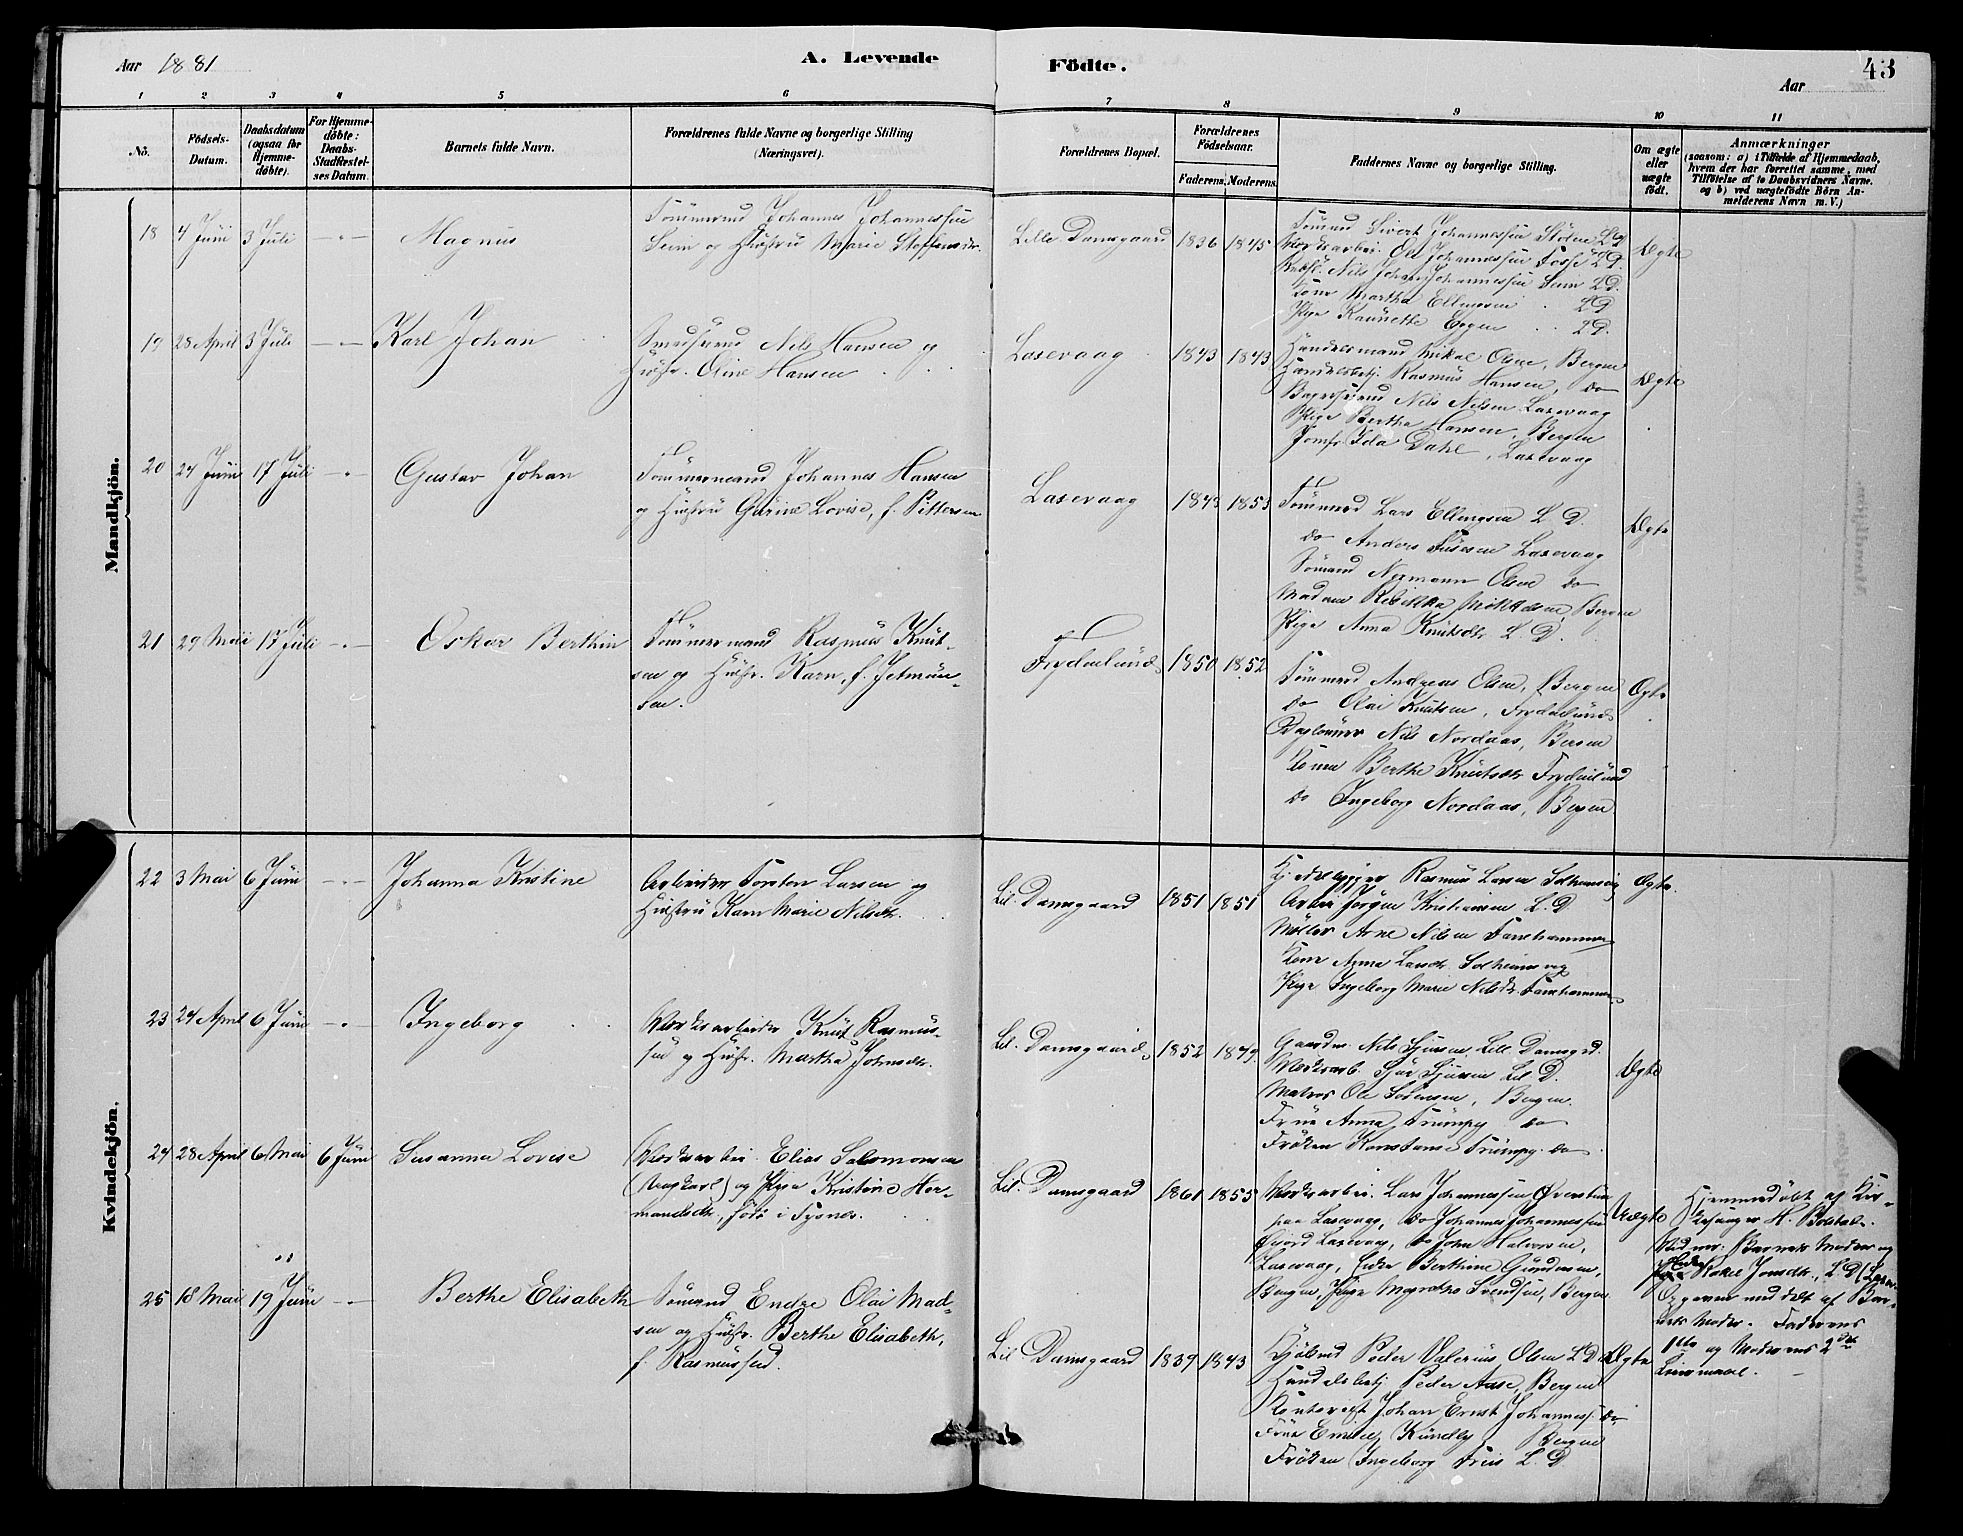 Aar 1881
A. Levende
Födte.
Aar
43
1 2 3 4 5 6 7 8 9 10 11
No.
Födsels-
Datum.
Daabsdatum
(ogsaa for
Hjemme-
døbte).
For Hjemme-
døbte:
Daabs-
Stadfæstel-
ses Datum.
Barnets fulde Navn.
Forældrenes fulde Navne og borgerlige Stilling
(Næringsvei).
Forældrenes Bopæl.
Forældrenes
Födselsaar.
Faderens. Moderens.
Faddernes Navne og borgerlige Stilling.
Om ægte
eller
uægte
födt.
Anmærkninger
(saasom: a) i Tilfælde af Hjemmedaab,
hvem der har forrettet samme, med
Tilföielse af to Daabsvidners Navne,
og b) ved uægtefödte Börn An-
melderens Navn m. V.)
Mandkjön.
18 4 Juni 3 Juli Magnus
Tömmermd Johannes Johannessen
Seim og Hustru Marie Steffensdr.
Lille Damsgaard 1836 1845
Sömand Sivert Johannessen Stölen L.D.
Værksarbei. Ole Johannessen Fosse L.D.
Johannessen Seim L.D.
Kone Martha Ellingsen L.D.
Pige L.D.
Ægte
19 28 April 3 Juli Karl Johan
Smedsvend Nils Hansen og
Hustr. Oline Hansen
Laxevaag 1843 1843
Handelsmand Mikal Olsen, Bergen
Handelsbetj. Rasmus Hansen, do
Bagersvend Nils Nilsen Laxevaag
Pige Bertha Hansen, Bergen
Jomfr Ida Dahl, Laxevaag
Ægte
20 24 Juni 17 Juli Gustav Johan
Tömmermand Johannes Hansen
og Hustru Gurine Lovise, f. Pettersen
Laxevaag 1843 1853
Tömmermd Lars Ellingsen L.D.
do Anders Laxevaag
Sömand Normann Olsen do
Madam Rebekka Bergen
Pige Anna Knutsdtr L.D.
Ægte
21 29 Mai 17 Juli Oskar Berthin
Tömmermand Rasmus Knut-
sen og Hustr. Karn, f. Jetmun-
sen.
Frydenlund 1850 1852
Tömmermd Andreas Olsen, Bergen
do Olai Knutsen, Frydenlund
Daglönner Nils Nordaas, Bergen
Kone Berthe Knutsdtr Frydenlund
do Ingeborg Nordaas, Bergen
Ægte
Kvindekjön.
22 3 Mai 6 Juni Johanna Kristine
Arbeider Torsten Larsen og
Hustru Karn Marie Nilsdtr.
Lil. Damsgaard 1851 1851
Rasmus Larsen Solheimsvig
Arbei Jörgen Kristiansen L.D.
Möller Arne Nilsen Fanehammer
Kone Anna Larsdtr Solheimsvig
Pige Ingeborg Marie Nilsdtr Fanehammer
Ægte
23 24 April 6 Juni Ingeborg
Værksarbeider Knut Rasmus-
sen og Hustr. Martha Johnsdtr.
Lil. Damsgaard 1852 1849
Gaardm. Nils Sjursen Lill. Damsgrd.
Værksarb. Sjur Sjursen Lil D.
Matros Ole Sörensen, Bergen.
Frue Anna Trumpy do
Fröken Konstanse Trumpy do
Ægte
24 28 April 6 Mai 6 Juni Susanna Lovise
Værksarbei. Elias Salomonsen
(Ungkarl) og Pige Kristine Her-
mandsdtr, född i Tysnes.
Lil. Damsgaard 1861 1855
Værksarbei. Lars Johannessen
paa Laxevaag, do Johannes Johannessen
Laxevaag, do John Halvorsen,
Laxevaag, Enke Berthine Gundersen,
Bergen, Pige Magrethe Svendsen, Bergen
Uægte
Hjemmedöbt af Kir-
kesanger H. Bolstad.
Vidner. Barnets Moder og
Rakel Jonsdtr., L.D.
Opgaven meddelt af Bar-
nets Moder. Faderens
1ste og Moderens 2det
Leiermaal.
25 18 Mai 19 Juni Berthe Elisabeth
Sömand Endre Olai Mad-
sen og Hustr. Berthe Elisabeth,
f. Rasmussen.
Lil. Damsgaard 1839 1843
Peder Valerius Olsen L.D.
Handelsbetj. Peder Aase, Bergen
Kontorist Johan Ernst Johanness. do
Frue Emilie Bergen
Fröken Ingeborg Friis L.D.
Ægte